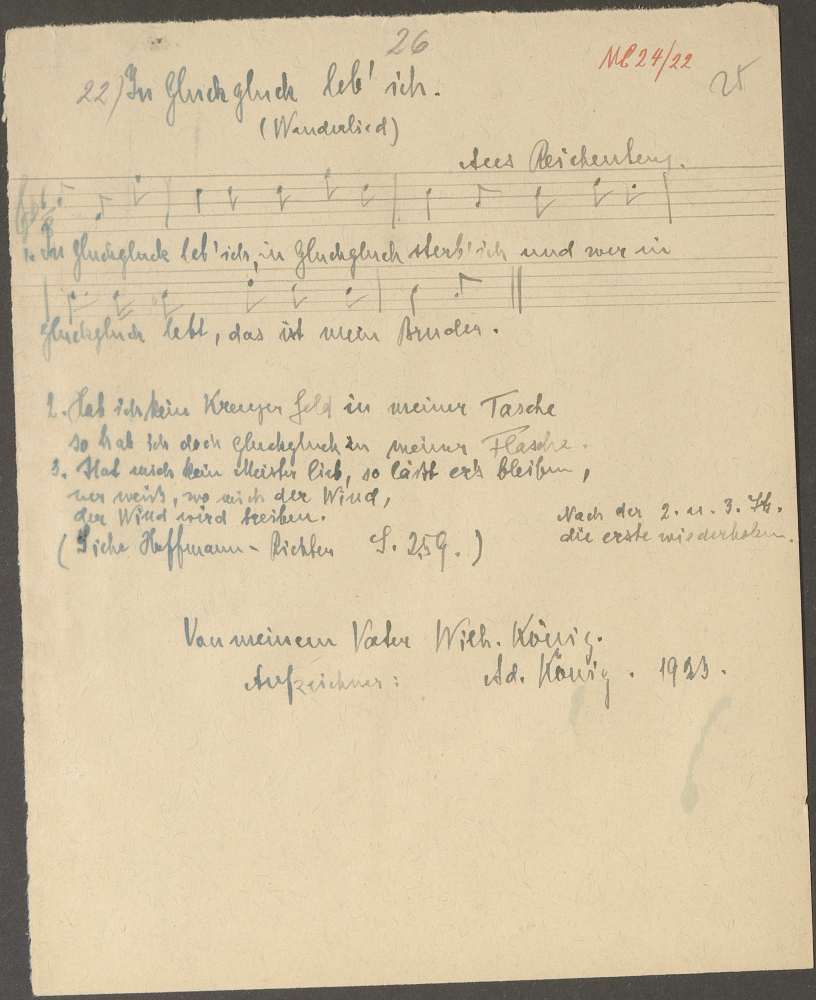 26
22) In Gluckgluck leb' ich.
25
(Wanderlied)
Aus Reichenberg.
1. In Gluckgluck leb' ich, in Gluckgluck sterb' ich und wer in
Gluckgluck lebt, das ist mein Bruder.
2. Hab ich kein Kreuzer Geld in meiner Tasche
so hab ich doch Gluckgluck in meiner Flasche.
3. Hat mich kein Meister lieb, so lässt er's bleiben,
wer weis, wo mich der Wind,
der Wind wird treiben.
Nach der 2. u. 3. Str.
die erste wiederholen.
(Siehe Hoffmann-Richter S. 259.)
Von meinem Vater Wilh. König.
Aufzeichner: Ad. König. 1923.